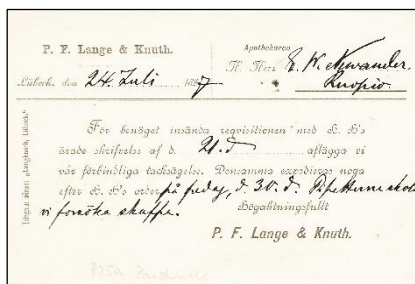 P. F. Lange & Knuth.
Apothekaren
Lübeck, den 24. Juli 1897
H. Herr E. W. Newander.
Kuopio.
För benäget insända requisitionen med H. H's
ärade skrifvelse af d. 21. d aflägga vi
vår förbindliga tacksägelse. Densamma expedieras noga
efter H. H's order på fredag, d. 30. d. Pipetterne skola
vi försöka skaffa.
Högaktningsfullt
P. F. Lange & Knuth.